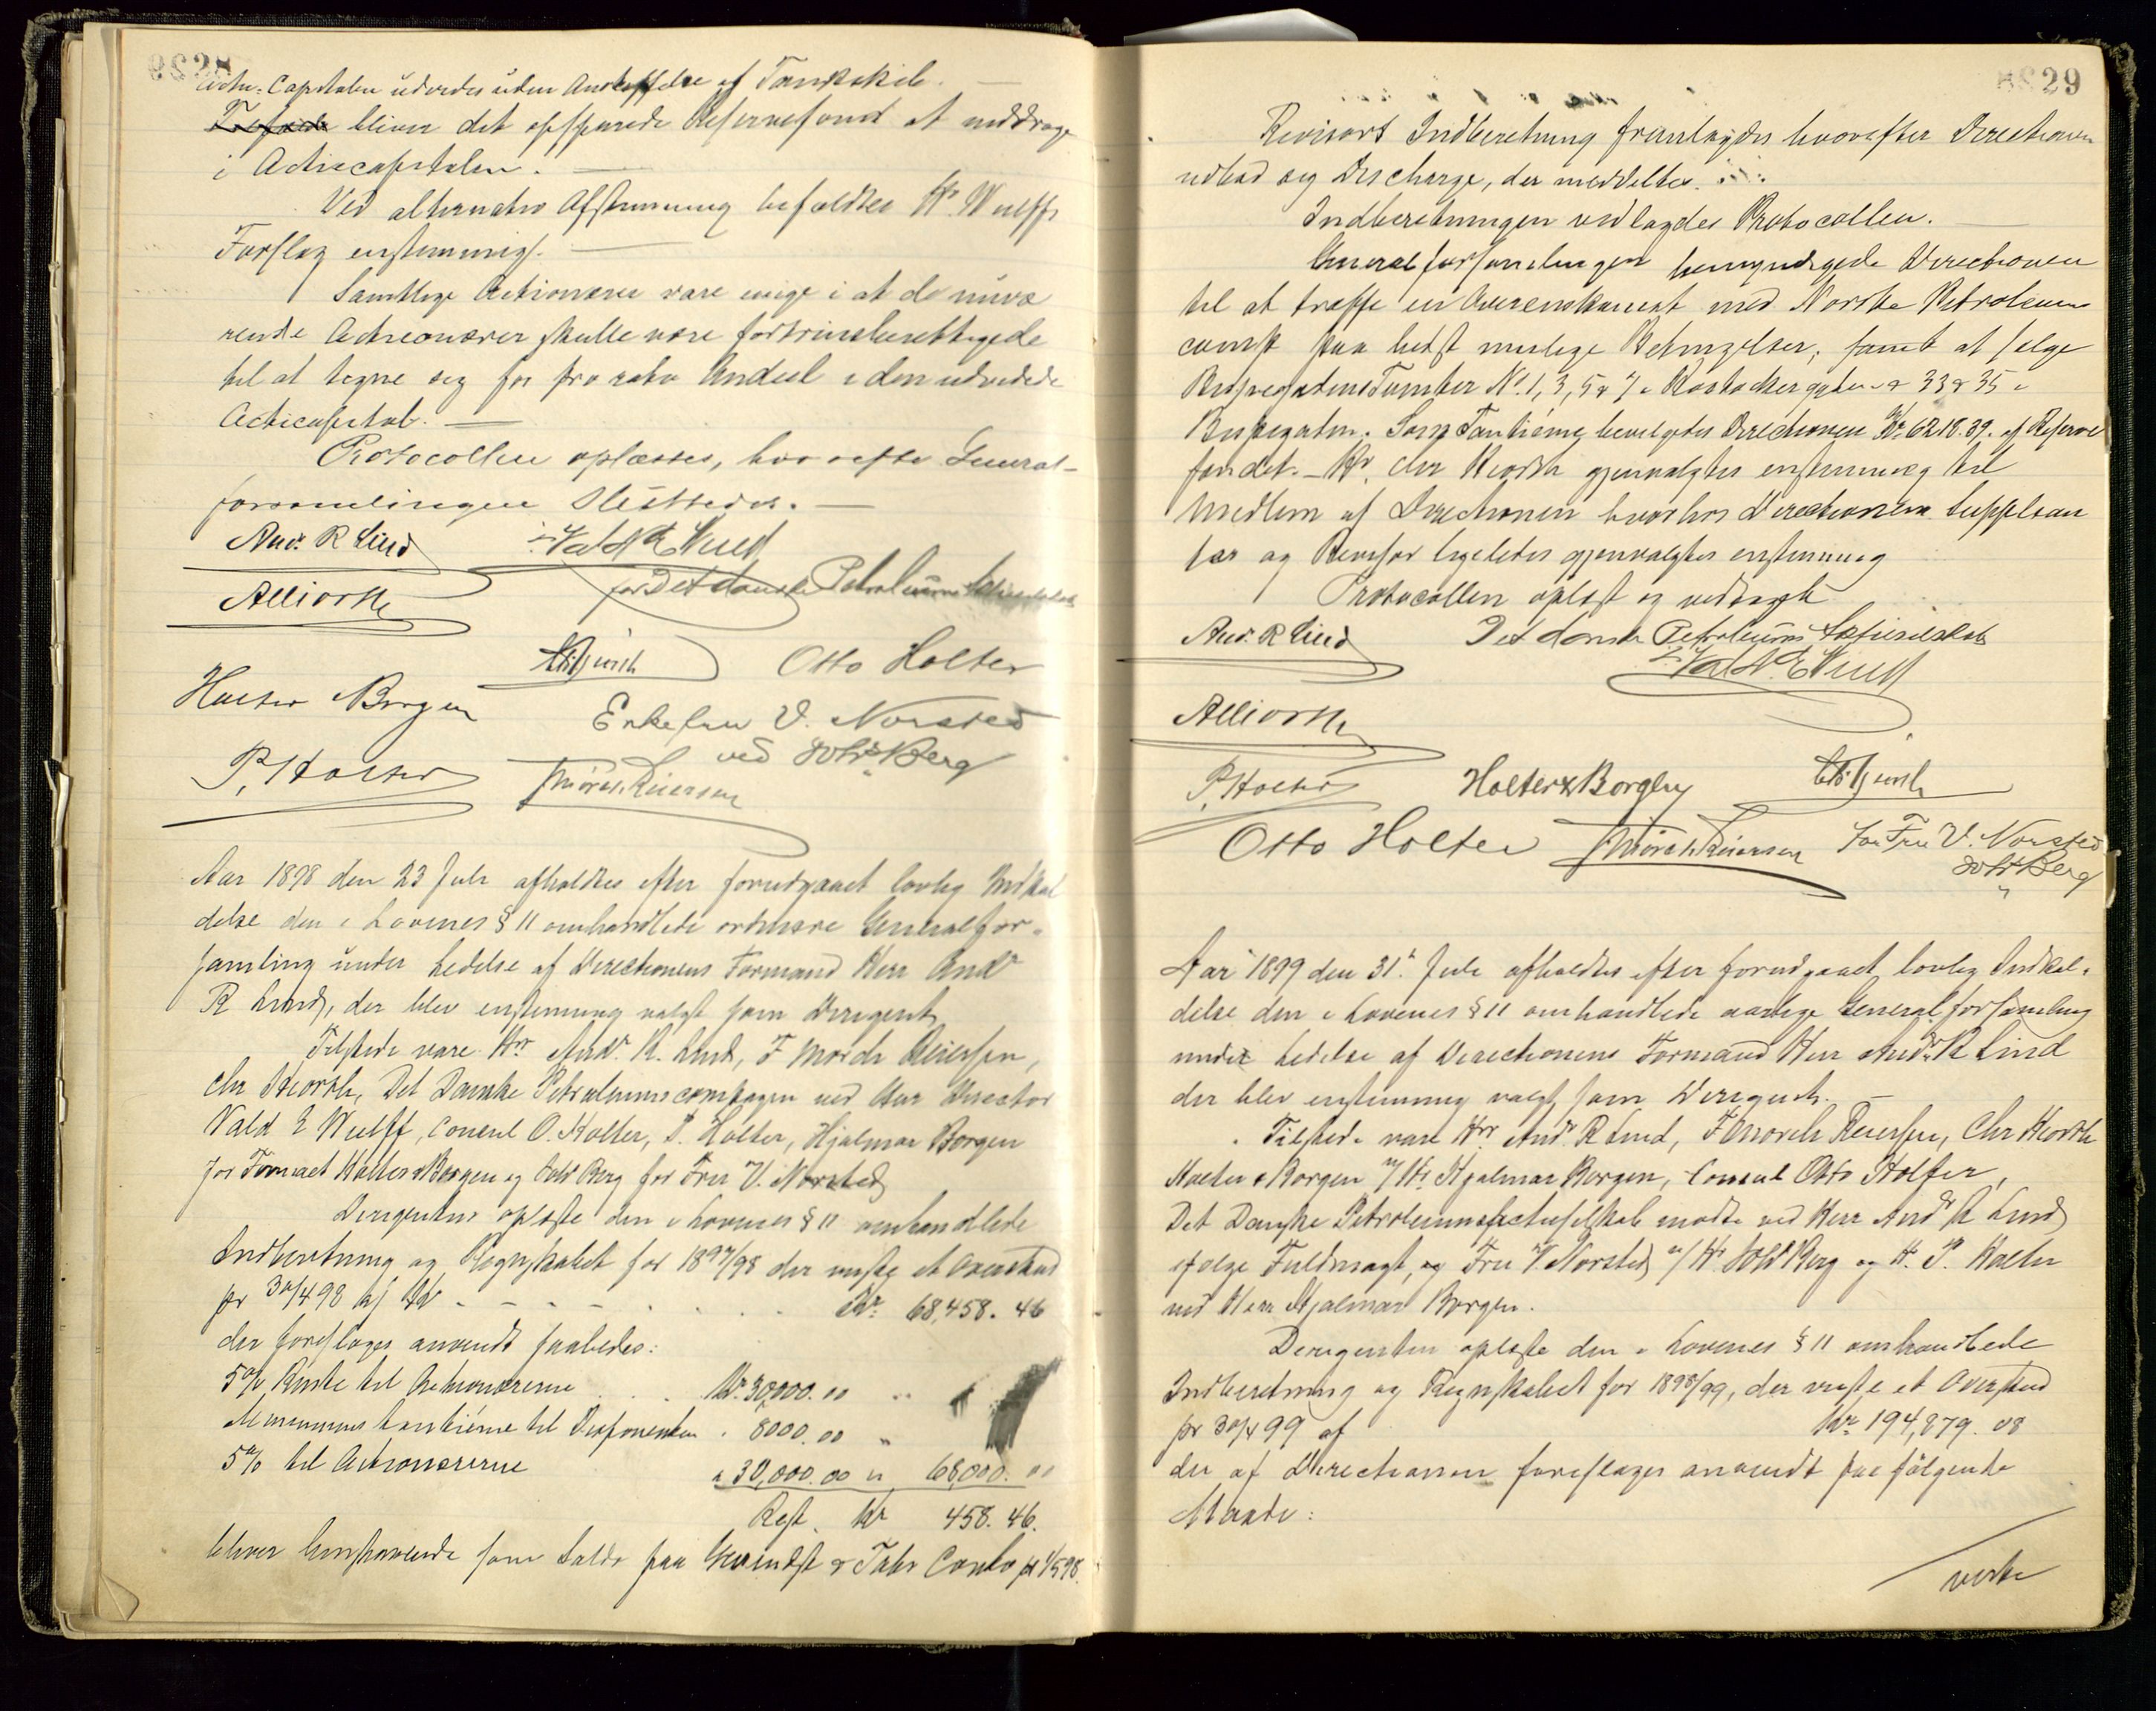 28
Actie-Capitalen udvides uden Anskaffelse af Tankskib. —
Tilfælde bliver det opsparede Reservefond at inddrage
i Actiecapitalen. —
Ved alternativ Afstemning befaldtes Hr. Wulffs
Forslag enstemmigt. —
Samtlige Actionærer vare enige i at de nuvæ
rende Actionærer skulle være fortrinsberettigede
til at tegne sig for pro rata Andeel i den udvidede
Actiecapital. —
Protocollen oplæstes, hvorefter General-
forsamlingen sluttedes. —
And. R Lind
for Det danske Petroleums Actieselskab
Chr Hiorth
Otto Holter
Holter & Borgen
Enkefru V. Norsted
ved Joh Berg
P. Holter
F Mørch Reiersen
Aar 1898 den 23 Juli afholdtes efter forudgaaet lovlig Indkal
delse den i Lovenes § 11 omhandlede ordinære Generalfor-
samling under Ledelse af Directionens Formand Herr Andr
R Lind, der blev enstemmig valgt som Dirigent
Tilstede vare Hrr Andr. R. Lind, F Mørch Reiersen,
Chr Hiorth, Det Danske Petroleumscompagni ved Herr Director
Vald E Wulff, Consul O. Holter, P. Holter, Hjalmar Borgen
for Firmaet Holter & Borgen og Joh Berg for Fru V. Norsted
Dirigenten oplæste den i Lovenes § 11 omhandlede
Indberetning og Regnskabet for 1897/98 der viste et Overskud
pr 30/4 98 af Kr - - - - Kr 68,458. 46
der foreslages anvendt saaledes:
5% Rente til Actionærerne . . Kr. 30,000.00
Minimums Tantième til Disponenten " 8000.00 "
5% til Actionærerne " 30,000.00 " 68,000. 00
Rest. Kr 458. 46.
bliver henstaaende som Saldo paa Gevindst & Tabs Conto pr 1/5 98.
29
Revisors Indberetning fremlagdes hvorefter Directionen
udbad sig Discharge, der meddeltes.
Indberetningen vedlagdes Protocollen. —
Generalforsamlingen bemyndigede Directionen
til at træffe en Overenskomst med Norske Petroleums
comp paa bedst mulige Betingelser, samt at sælge
Tomter No. 1, 3, 5 & 7 i Rostockergaden & 33 & 35 i
Bispegaden. Som Tantième bevilgedes Directionen Kr. 6210.39. af Reserve
fondet. - Hr. Chr Hiorth gjenvalgtes enstemmig til
Medlem af Directionen hvorhos Directionens Supplean
ter og Revisor ligeledes gjenvalgtes enstemmig
Protocollen oplæst og vedtaget
And. R Lind
Det danske Petroleums Actieselskab
P. Holter
Holter & Borgen
Chr Hiorth
Otto Holter
F Mørch Reiersen
for Fru V. Norsted
Joh Berg
Aar 1899 den 31. Juli afholdtes efter forudgaaet lovlig Indkal-
delse den i Lovenes § 11 omhandlede aarlige Generalforsamling
under Ledelse af Directionens Formand Herr Andr R Lind
der blev enstemmig valgt som Dirigent. —
Tilstede vare Hrr Andr. R Lind, F Mørch Reiersen, Chr Hiorth
Holter & Borgen v/ Hr Hjalmar Borgen, Consul Otto Holter,
Det Danske Petroleumsactieselskab mødte ved Herr Andr R Lind
ifølge Fuldmagt, og Fru V Norsted v/ Hr. Joh Berg og H. P. Holter
ved Herr Hjalmar Borgen.
Dirigenten oplæste den i Lovenes § 11 omhandlede
Indberetning og Regnskabet for 1898/99, der viste et Overskud
pr 30/4 99 af Kr 194,879. 08
der af Directionen foreslages anvendt paa følgende
Maade:
verte